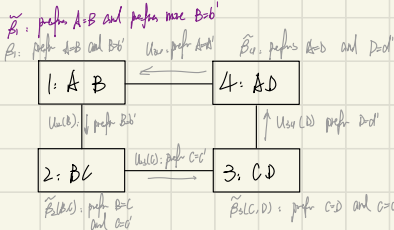 β̃₁: prefers A=B and prefers more B=b'
β₁: prefer A=B and B=b'
prefer A=A'
β̃₄: prefers A=D and D=d'
1: A B
4: AD
prefer B=b'
U₃₄(D) prefer D=d'
2: BC
U₂₃(C): prefer C=c'
3: CD
β̃₂(B,C): prefer B=C
and C=c'
β̃₃(C,D): prefer C=D and